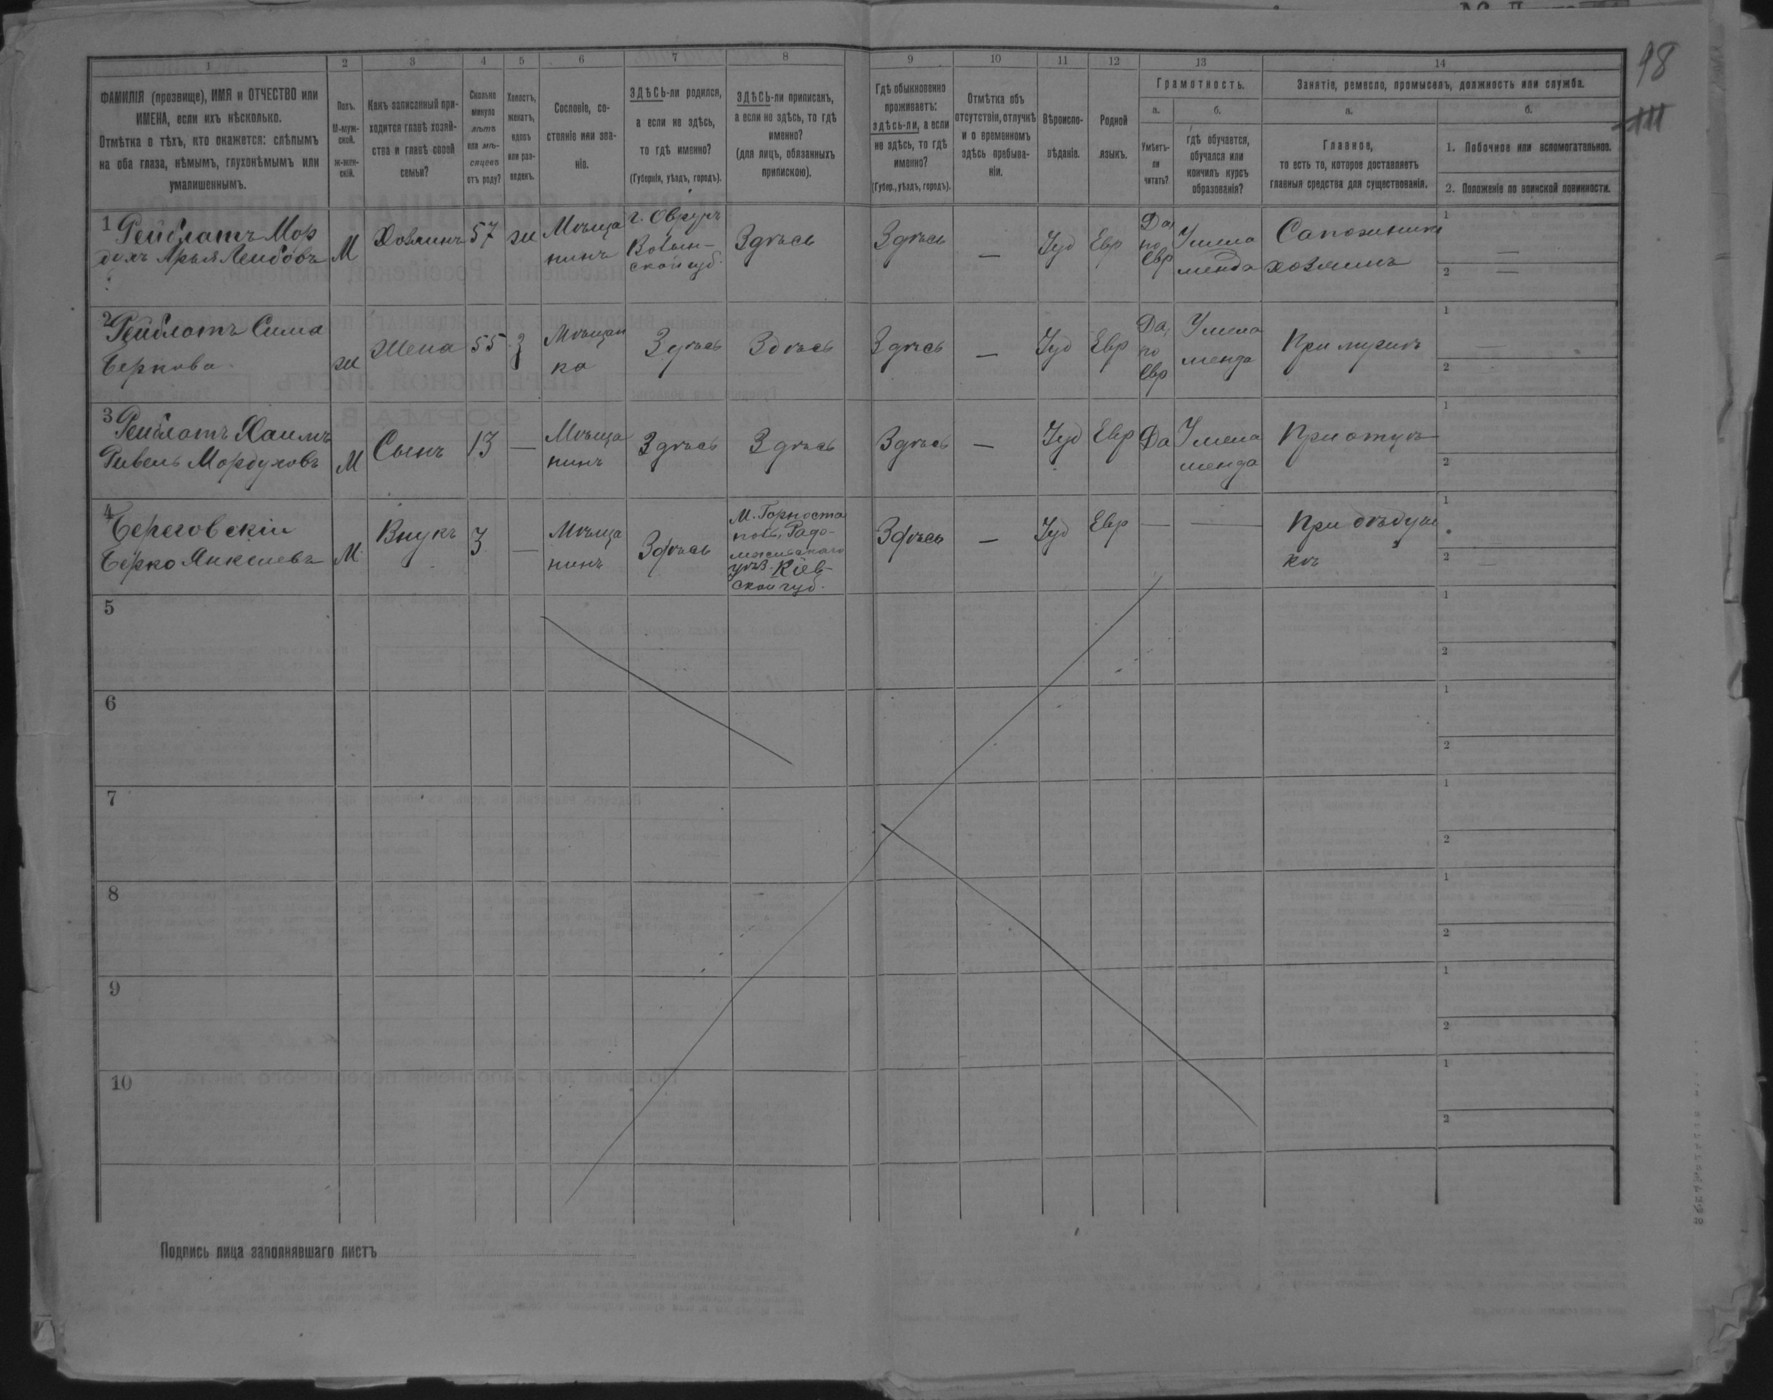 98
111
1
2
3
4
5
6
7
8
9
10
11
12
13
14
ФАМИЛІЯ (прозвище), ИМЯ и ОТЧЕСТВО или
ИМЕНА, если ихъ нѣсколько.
Отмѣтка о тѣхъ, кто окажется: слѣпымъ
на оба глаза, нѣмымъ, глухонѣмымъ или
умалишеннымъ.
Полъ.
М-муж-
ской.
ж-жен-
скій.
Какъ записанный при-
ходится главѣ хозяй-
ства и главѣ своей
семьи?
Сколько
минуло
лѣтъ
или мѣ-
сяцевъ
отъ роду?
Холостъ,
женатъ,
вдовъ
или раз-
веденъ.
Сословіе, со-
стояніе или зва-
ніе.
ЗДѢСЬ-ли родился,
а если не здѣсь,
то гдѣ именно?
(Губернія, уѣздъ, городъ).
ЗДѢСЬ-ли приписанъ,
а если не здѣсь, то гдѣ
именно?
(для лицъ, обязанныхъ
припискою).
Гдѣ обыкновенно
проживаетъ:
здѣсь-ли, а если
не здѣсь, то гдѣ
именно?
(Губер., уѣздъ, городъ).
Отмѣтка объ
отсутствіи, отлучкѣ
и о временномъ
здѣсь пребыва-
ніи.
Вѣроиспо-
вѣданіе.
Родной
языкъ.
Грамотность.
а.
б.
Умѣетъ-
ли
читать?
гдѣ обучается,
обучался или
кончилъ курсъ
образованія?
Занятіе, ремесло, промыселъ, должность или служба.
а.
б.
Главное,
то есть то, которое доставляетъ
главныя средства для существованія.
1. Побочное или вспомогательное.
2. Положеніе по воинской повинности.
1 Рейблатъ Мор
духъ Арья Лейбовъ
М
Хозяинъ
57
ж
Мѣща
нинъ
г. Овручъ
Волын-
ской губ.
Здѣсь
Здѣсь
—
Іуд
Евр
Да,
по
Евр
У мела
меда
Сапожникъ
хозяинъ
1 —
2 —
2 Рейблатъ Сима
Беркова
ж
Жена
55
з
Мѣщан
ка
Здѣсь
Здѣсь
Здѣсь
—
Іуд
Евр
Да,
по
Евр
У мела
меда
При мужѣ
1
2
3 Рейблатъ Хаимъ
Фивель Мордуховъ
М
Сынъ
13
—
Мѣща
нинъ
Здѣсь
Здѣсь
Здѣсь
—
Іуд
Евр
Да
У мела
меда
При отцѣ
1
2
4 Береговскій
Берко Янкелевъ
М
Внукъ
3
—
Мѣща
нинъ
Здѣсь
М. Горноста
поль, Радо-
мысльскаго
уѣз. Кіев-
ской губ.
Здѣсь
—
Іуд
Евр
—
—
При дѣдуш
кѣ
1
2
5
1
2
6
1
2
7
1
2
8
1
2
9
1
2
10
1
2
Подпись лица заполнявшаго листъ